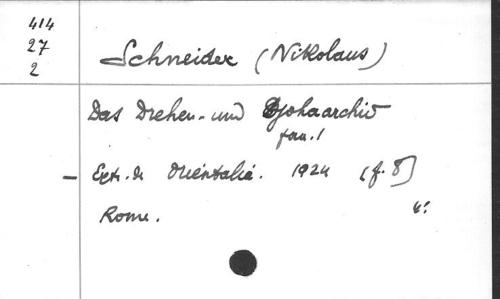 414
27
2
Schneider (Nikolaus)
Das Drehen- und Djohaarchiv
fasc. 1
— Extr. de Orientalia. 1924 (f. 8)
Rome. 4°